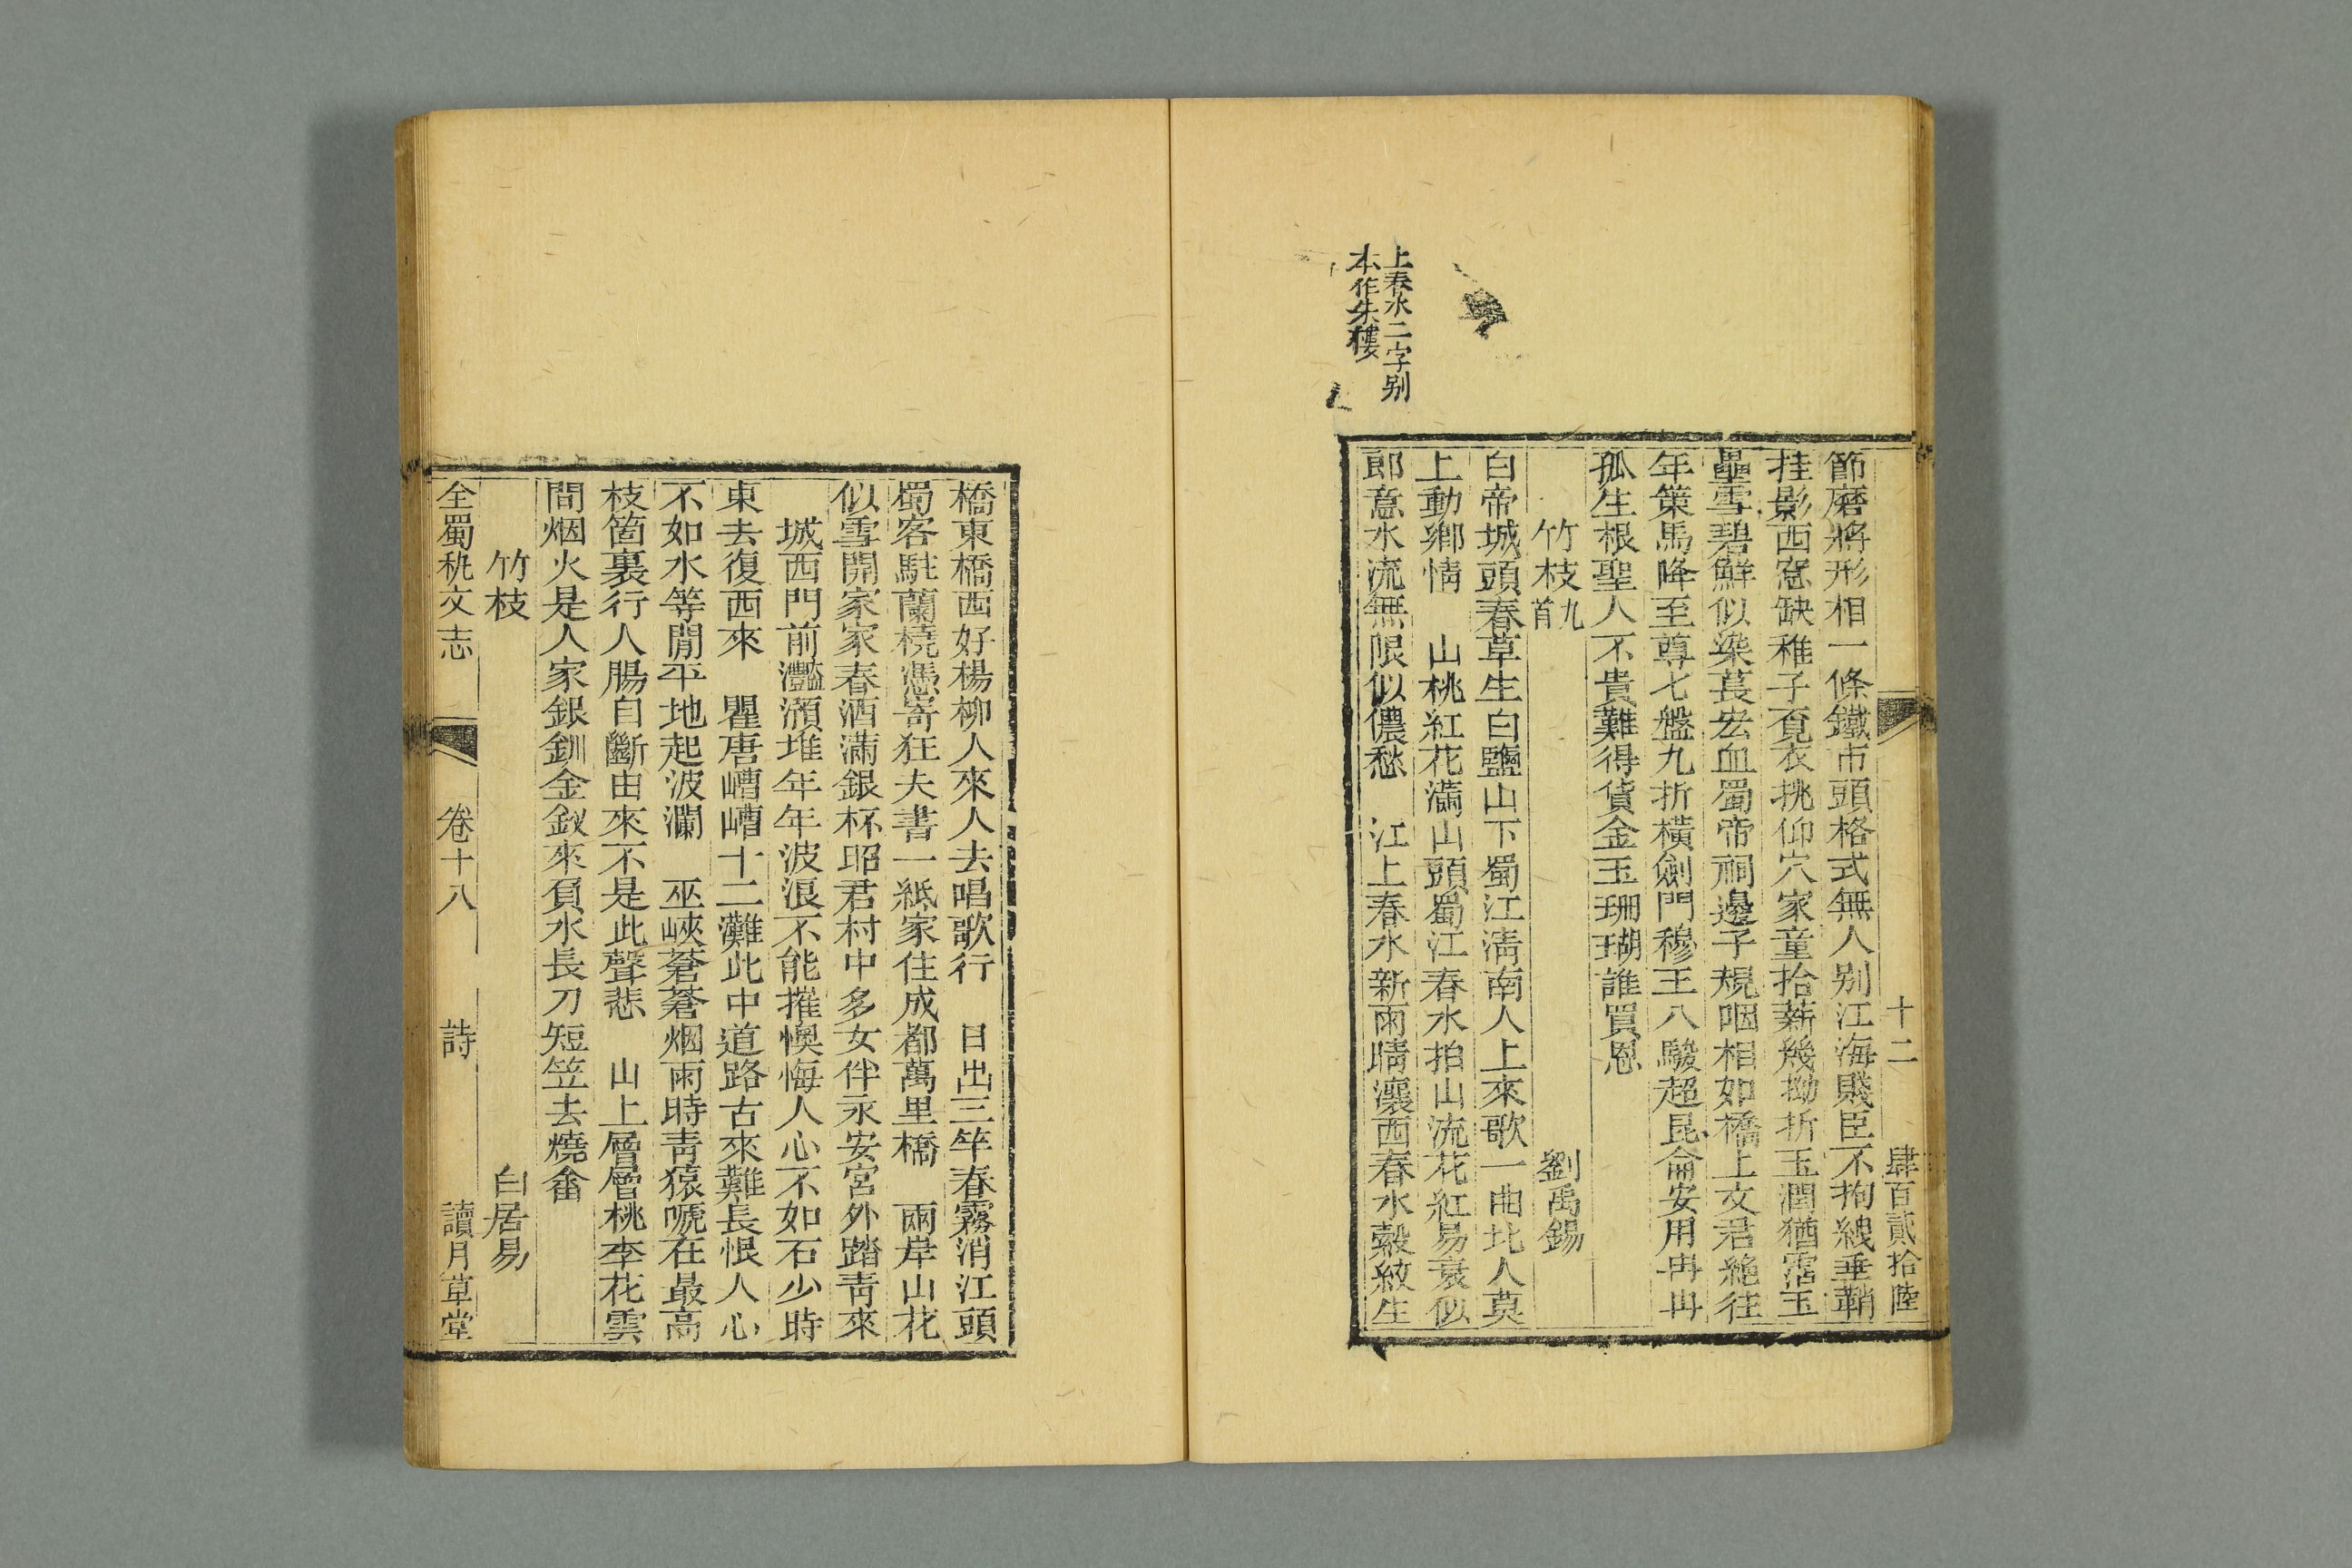 十二 肆百貳拾陸
節磨將形相一條鐵市頭格式無人別江海賤臣不拘綫垂鞘
挂影西窓缺稚子覔衣挑仰穴家童拾薪幾拗折玉潤猶霑玉
壘雪碧鮮似染萇宏血蜀帝祠邊子規咽相如橋上文君絕往
年策馬降至尊七盤九折橫劍門穆王八駿超昆侖安用冉冉
孤生根聖人不貴難得貨金玉珊瑚誰買恩
竹枝九首 劉禹錫
白帝城頭春草生白鹽山下蜀江淸南人上來歌一曲北人莫
上動鄉情 山桃紅花滿山頭蜀江春水拍山流花紅易衰似
郎意水流無限似儂愁 江上春水新雨晴瀼西春水縠紋生
上春水二字別
本作朱樓
橋東橋西好楊柳人來人去唱歌行 日出三竿春霧消江頭
蜀客駐蘭橈憑寄狂夫書一紙家住成都萬里橋 兩岸山花
似雪開家家春酒滿銀杯昭君村中多女伴永安宮外踏靑來
城西門前灩澦堆年年波浪不能摧懊悔人心不如石少時
東去復西來 瞿唐嶆嶆十二灘此中道路古來難長恨人心
不如水等閒平地起波瀾 巫峽蒼蒼烟雨時靑猿嗁在最高
枝箇裏行人腸自斷由來不是此聲悲 山上層層桃李花雲
間烟火是人家銀釧金釵來負水長刀短笠去燒畬
竹枝 白居易
全蜀秇文志 卷十八 詩 讀月草堂